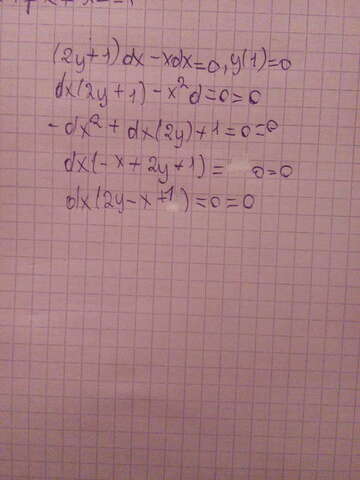 (2y+1)dx-xdx=0,y(1)=0
dx(2y+1)-x²d=0=0
-dx²+dx(2y)+1=0=0
dx(-x+2y+1)= 0=0
dx(2y-x+1)=0=0